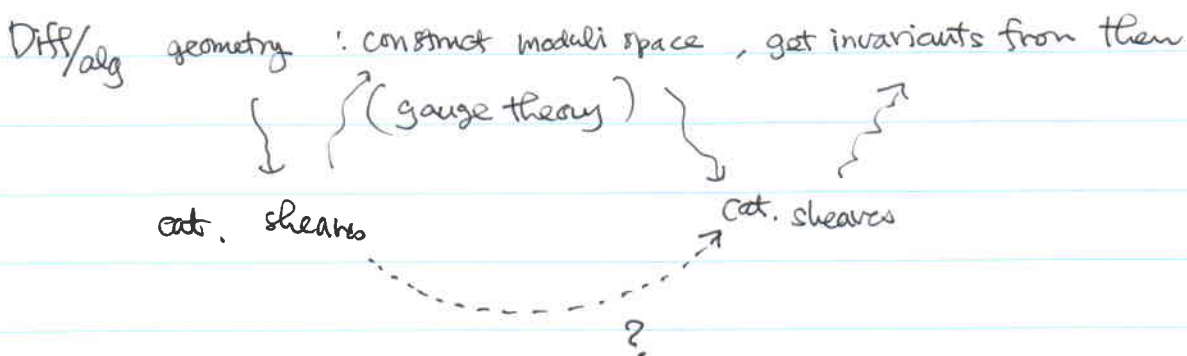 Diff/alg geometry : construct moduli space, get invariants from them
(gauge theory)
cat. sheaves cat. sheaves
?